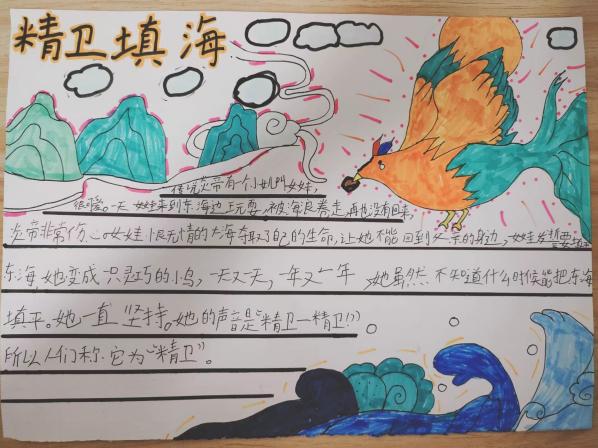 精卫填海
传说炎帝有一个小女儿叫女娃,
很可爱。一天 女娃来到东海边上玩耍,被海浪卷走,再也没有回来,
炎帝非常伤心。女娃恨无情的大海夺取了自己的生命,让她不能回到父亲的身边,女娃发誓要
东海,她变成一只灵巧的鸟,一天又一天,一年又一年,她虽然不知道什么时候能把东海
填平。她一直坚持。她的声音是“精卫—精卫!”
所以人们称它为“精卫”。